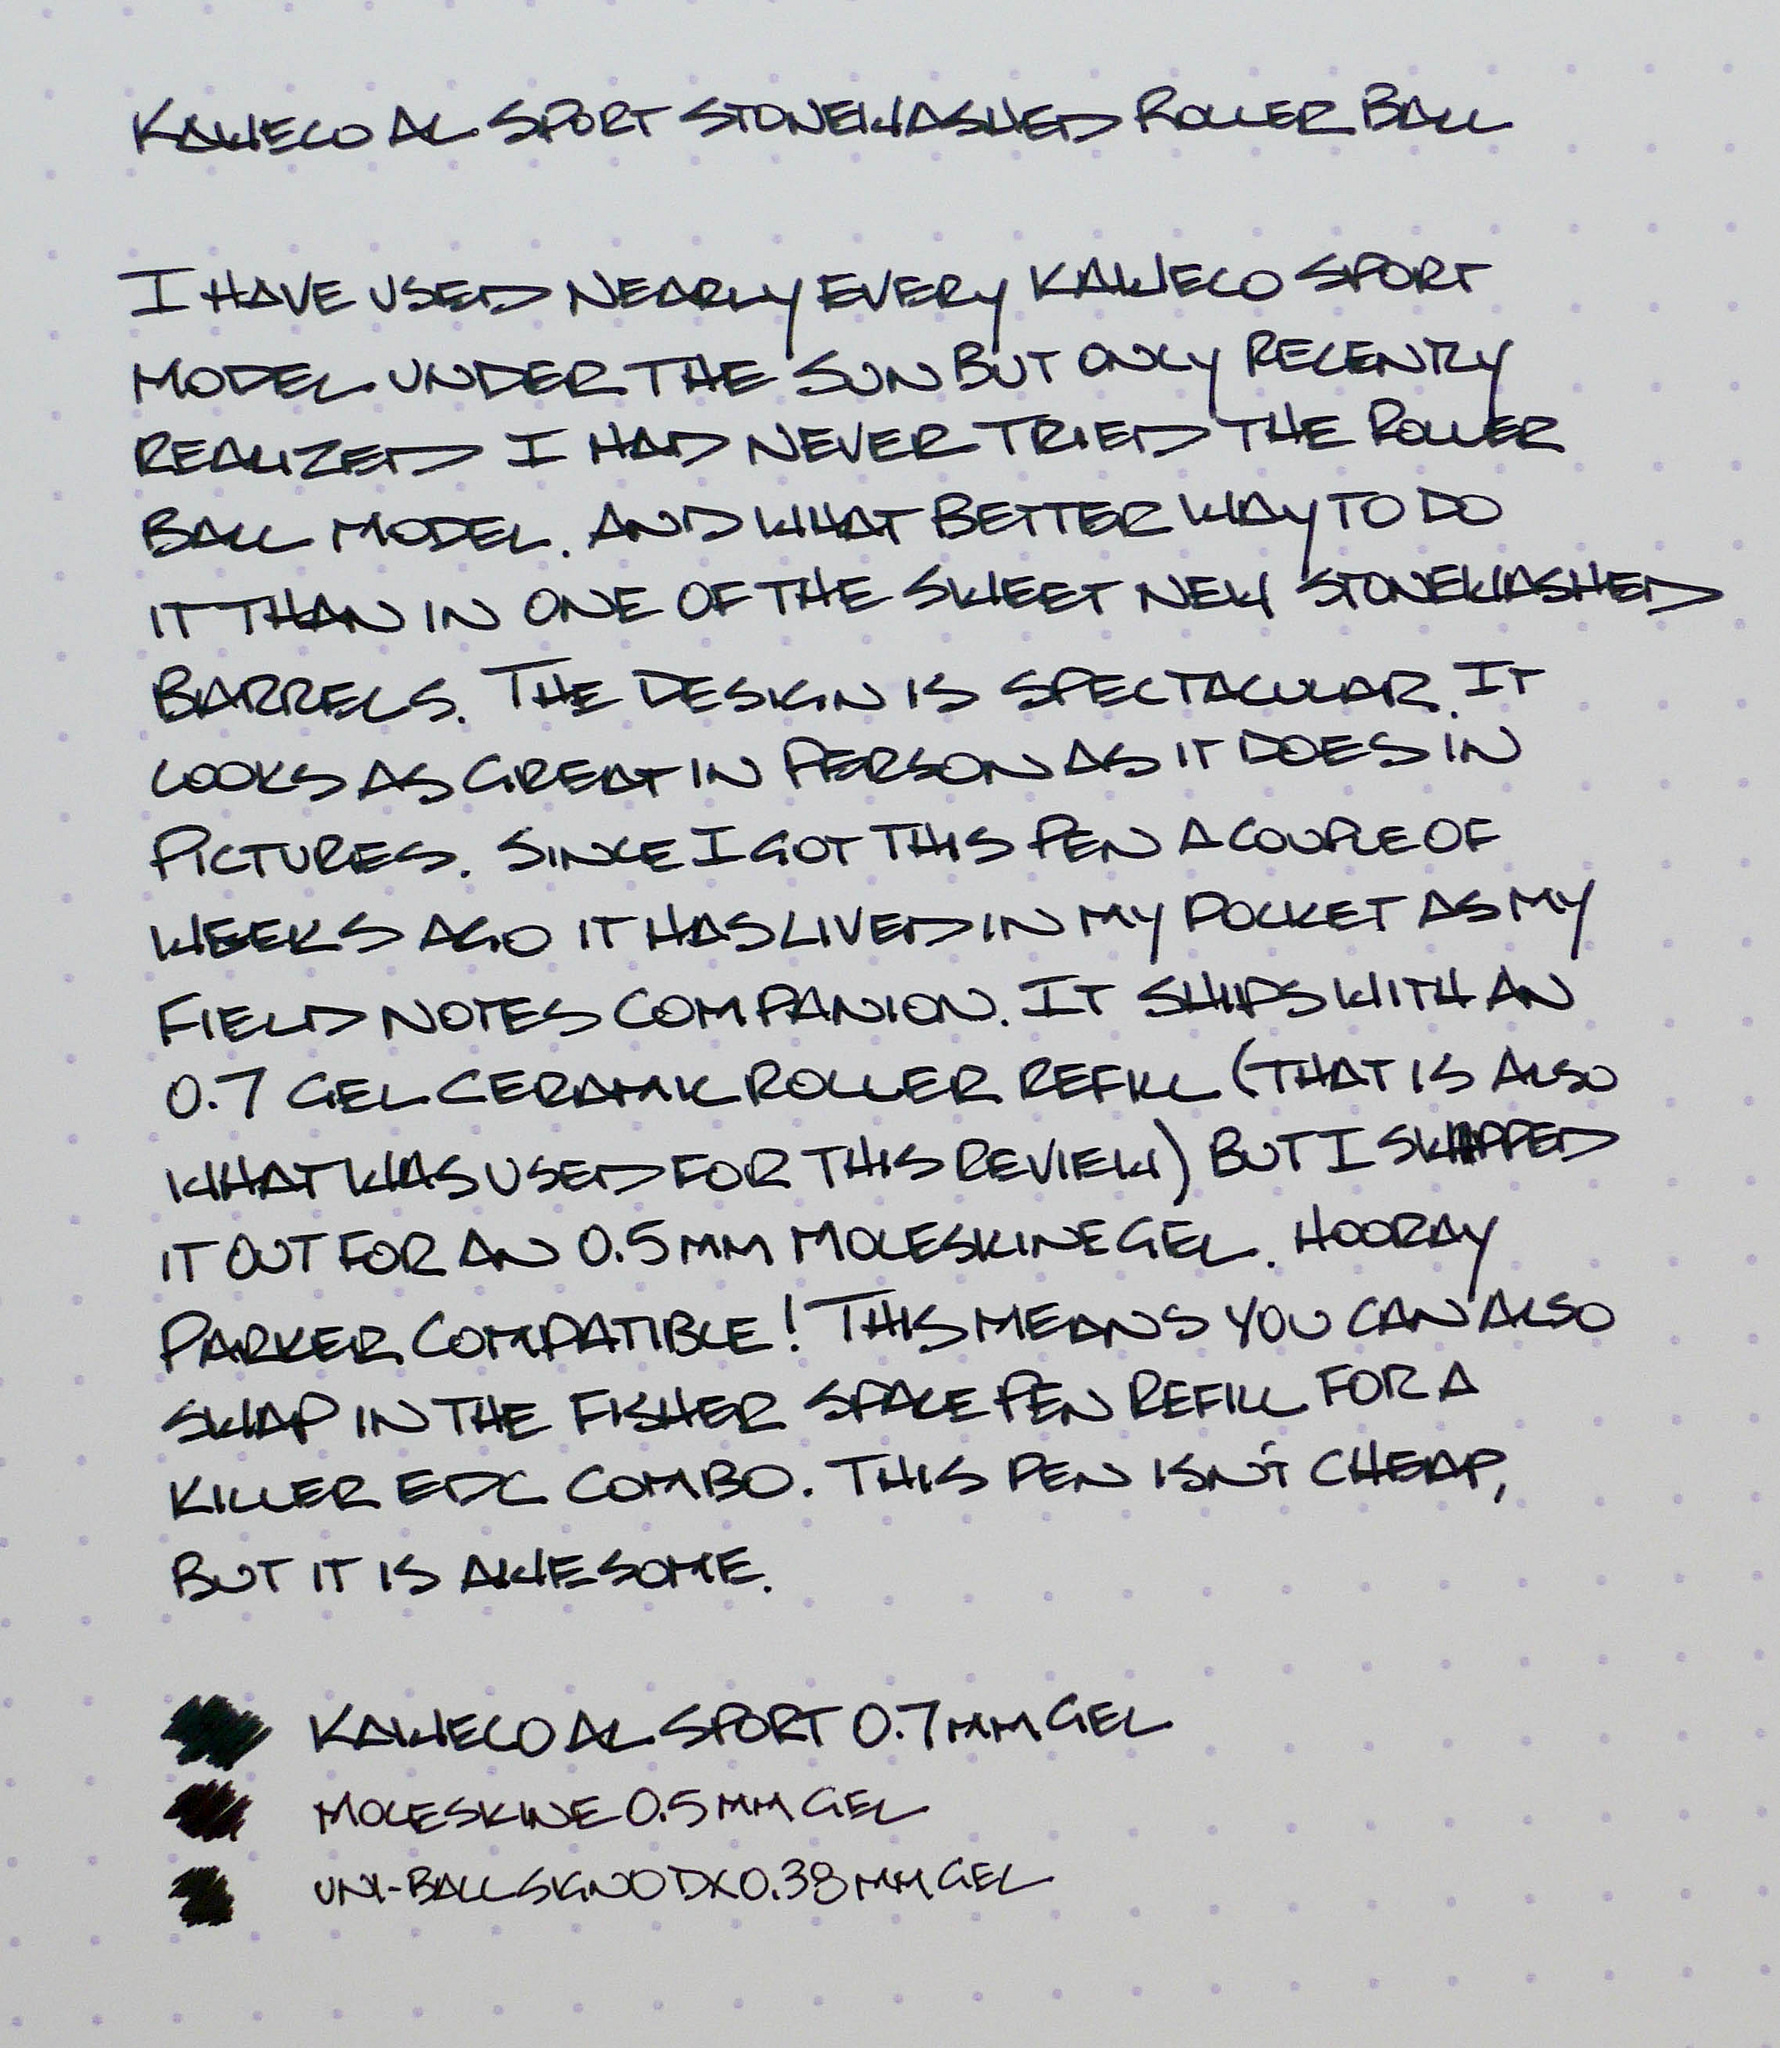 KAWECO AL SPORT STONEWASHED ROLLER BALL
I HAVE USED NEARLY EVERY KAWECO SPORT
MODEL UNDER THE SUN BUT ONLY RECENTLY
REALIZED I HAD NEVER TRIED THE ROLLER
BALL MODEL. AND WHAT BETTER WAY TO DO
IT THAN IN ONE OF THE SWEET NEW STONEWASHED
BARRELS. THE DESIGN IS SPECTACULAR. IT
LOOKS AS GREAT IN PERSON AS IT DOES IN
PICTURES. SINCE I GOT THIS PEN A COUPLE OF
WEEKS AGO IT HAS LIVED IN MY POCKET AS MY
FIELD NOTES COMPANION. IT SHIPS WITH AN
0.7 GEL CERAMIC ROLLER REFILL (THAT IS ALSO
WHAT WAS USED FOR THIS REVIEW) BUT I SWAPPED
IT OUT FOR AN 0.5 MM MOLESKINE GEL. HOORAY
PARKER COMPATIBLE! THIS MEANS YOU CAN ALSO
SWAP IN THE FISHER SPACE PEN REFILL FOR A
KILLER EDC COMBO. THIS PEN ISN'T CHEAP,
BUT IT IS AWESOME.
KAWECO AL SPORT 0.7 MM GEL
MOLESKINE 0.5 MM GEL
UNI-BALL SIGNO DX 0.38 MM GEL